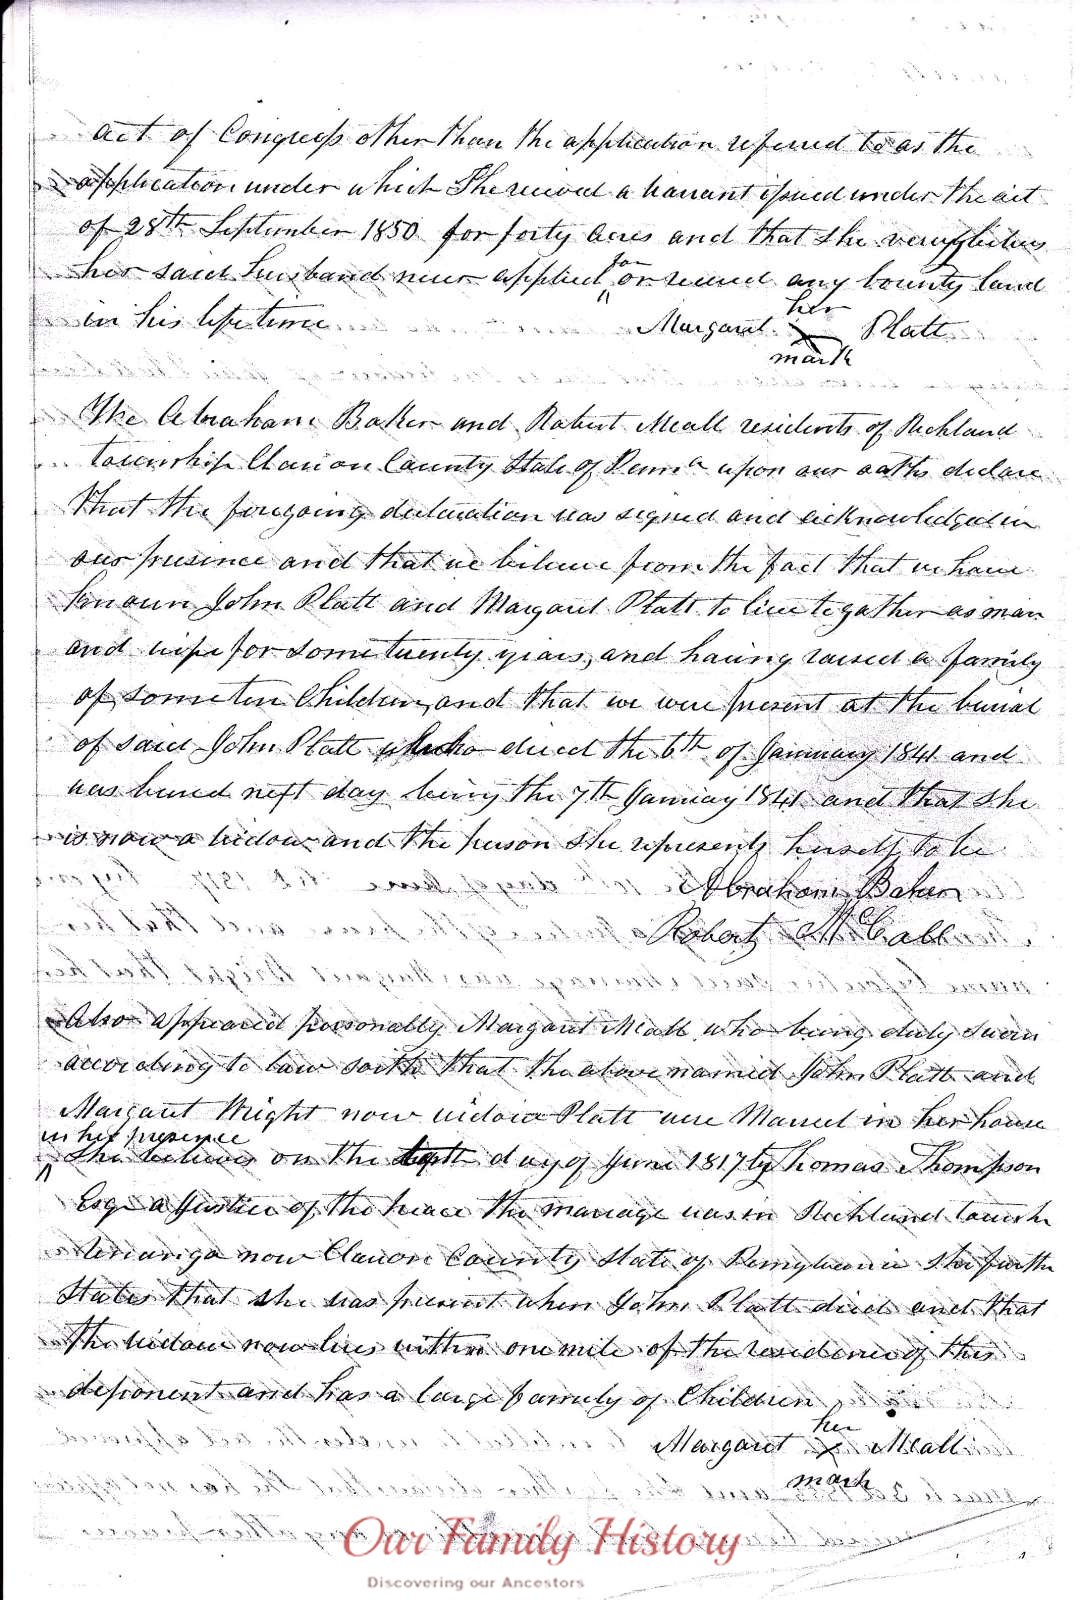 act of Congress other than the application referred to as the
application under which She recived a warrant issued under the act
of 28th September 1850 for forty acres and that she verry believs
her said husband never applied for or recived any bounty land
in his life time Margaret her Platt
mark
The Abraham Baker and Robert Mcall residents of Richland
township Clarion County State of Penna upon our oaths declare
that the foregoing declaration was signed and acknowledged in
our presence and that we believe from the fact that we have
known John Platt and Margaret Platt to live togather as man
and wife for some twenty years, and having raised a family
of some ten Children, and that we were present at the burial
of said John Platt who died the 6th of January 1841 and
was buried next day being the 7th January 1841 and that she
is now a widow and the person she represents herself to be
Abraham Baker
Robert McCall
Also appeared personally Margaret Mcall who being duly sworn
according to law saith that the above named John Platt and
Margaret Wright now widow Platt were Maried in her house
in her presence
she believes on the tenth day of June 1817 by Thomas Thompson
Esqr a Justice of the peace the marriage was in Richland townsh
Venango now Clarion County State of Pensylvania She further
States that she was present when John Platt died and that
the widow now lives within one mile of the residence of this
deponent and has a large family of Children
her
Margaret x Mcall
mark
Our Family History
Discovering our Ancestors